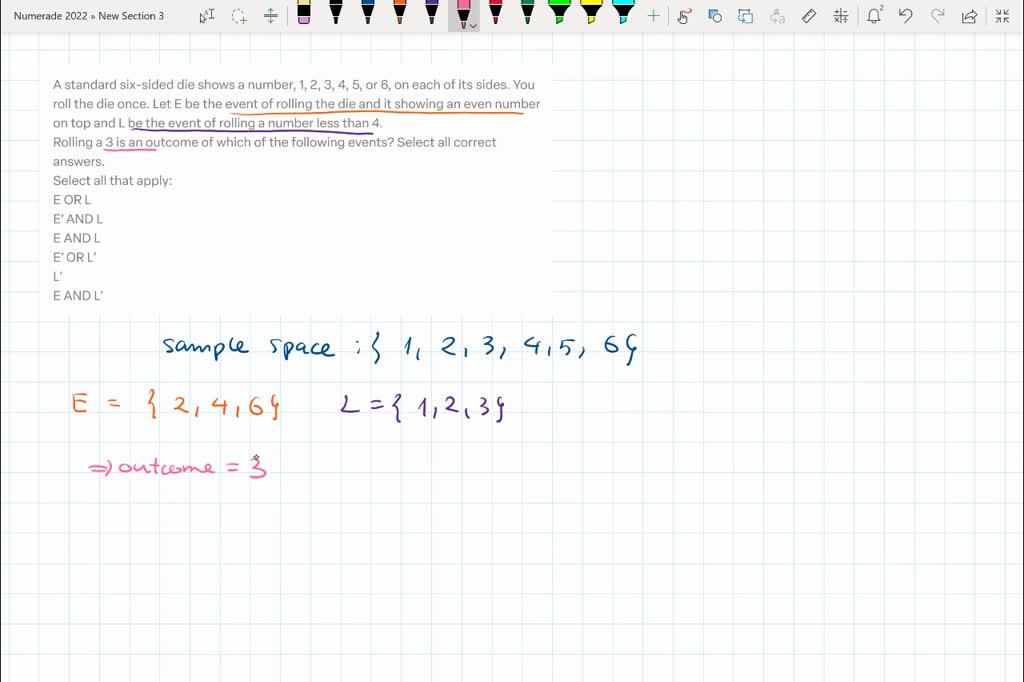 Numerade 2022 » New Section 3
A standard six-sided die shows a number, 1, 2, 3, 4, 5, or 6, on each of its sides. You
roll the die once. Let E be the event of rolling the die and it showing an even number
on top and L be the event of rolling a number less than 4.
Rolling a 3 is an outcome of which of the following events? Select all correct
answers.
Select all that apply:
E OR L
E' AND L
E AND L
E' OR L'
L'
E AND L'
sample space : { 1, 2, 3, 4, 5, 6 }
E = { 2, 4, 6 } L = { 1, 2, 3 }
⇒ outcome = 3